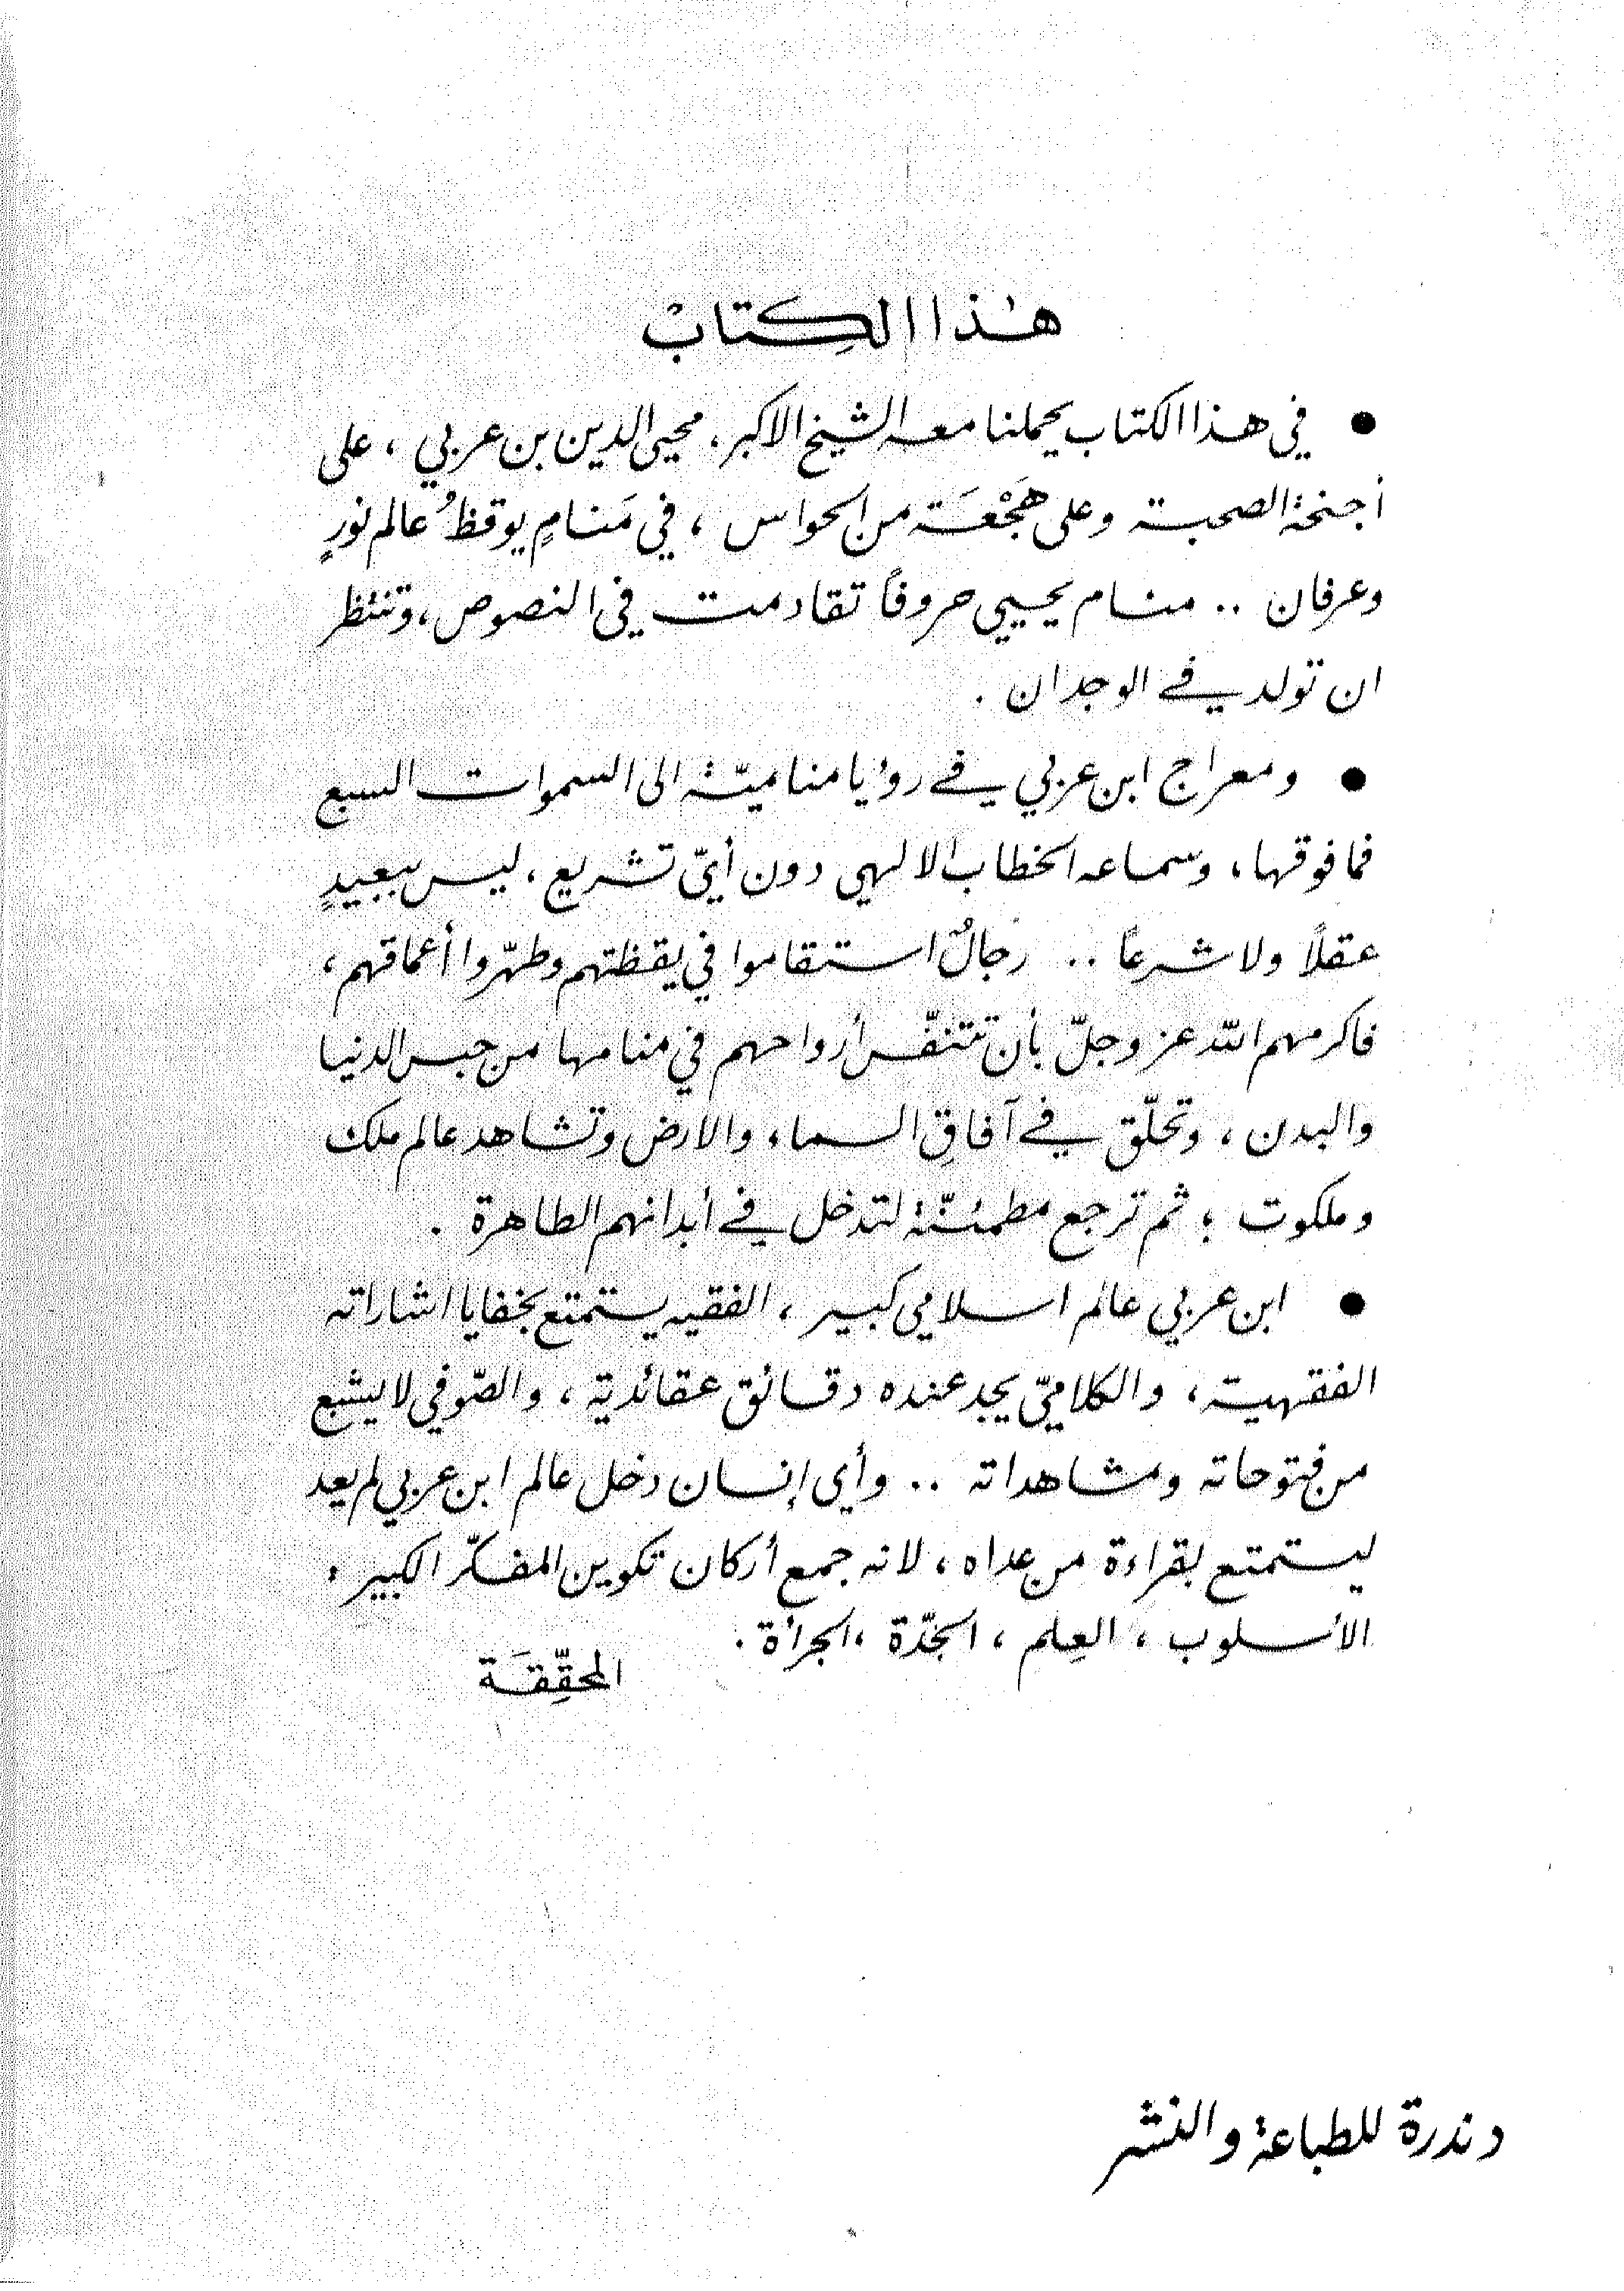 هٰذا الكِتابْ
● في هذا الكتاب يحملنا معه الشيخ الاكبر، محيي الدين بن عربي ، على
أجنحة الصحبة وعلى هَجْعَة من الحواس ، في مَنامٍ يوقظُ عالم نورٍ
وعرفان .. منام يحيي حروفًا تقادمت في النصوص، وتنتظر
ان تولد في الوجدان .
● ومعراج ابن عربي في رؤيا مناميّة الى السموات السبع
فما فوقها، وسماعه الخطاب الالهي دون أيّ تشريع، ليس ببعيدٍ
عقلاً ولا شرعًا .. رجالٌ استقاموا في يقظتهم وطهّروا أعماقهم،
فاكرمهم اللّه عز وجلّ بأن تتنفّس أرواحهم في منامها من حبس الدنيا
والبدن ، وتحلّق في آفاقِ السماء والارض وتشاهد عالم ملك
وملكوت ؛ ثم ترجع مطمئنّة لتدخل في أبدانهم الطاهرة .
● ابن عربي عالم اسلامي كبير ، الفقيه يستمتع بخفايا اشاراته
الفقهية، والكلاميّ يجد عنده دقائق عقائدية ، والصّوفي لا يشبع
من فتوحاته ومشاهداته .. وأي إنسان دخل عالم ابن عربي لم يعد
ليستمتع بقراءة من عداه ، لانه جمع أركان تكوين المفكّر الكبير :
الأسلوب ، العِلم ، الجدّة ، الجرأة .
المحقِّقَة
دندرة للطباعة والنشر